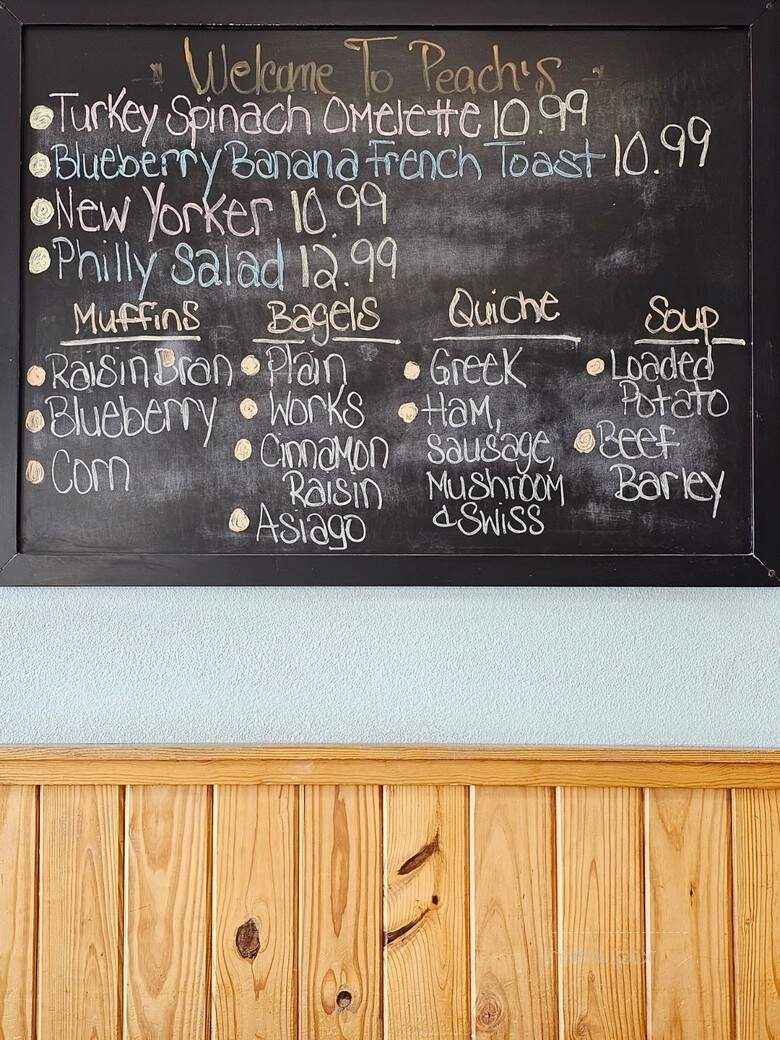 Welcome To Peach's
Turkey Spinach Omelette 10.99
Blueberry Banana French Toast 10.99
New Yorker 10.99
Philly Salad 12.99
Muffins
Raisin Bran
Blueberry
Corn
Bagels
Plain
Works
Cinnamon
Raisin
Asiago
Quiche
Greek
Ham,
Sausage,
Mushroom
& Swiss
Soup
Loaded
Potato
Beef
Barley